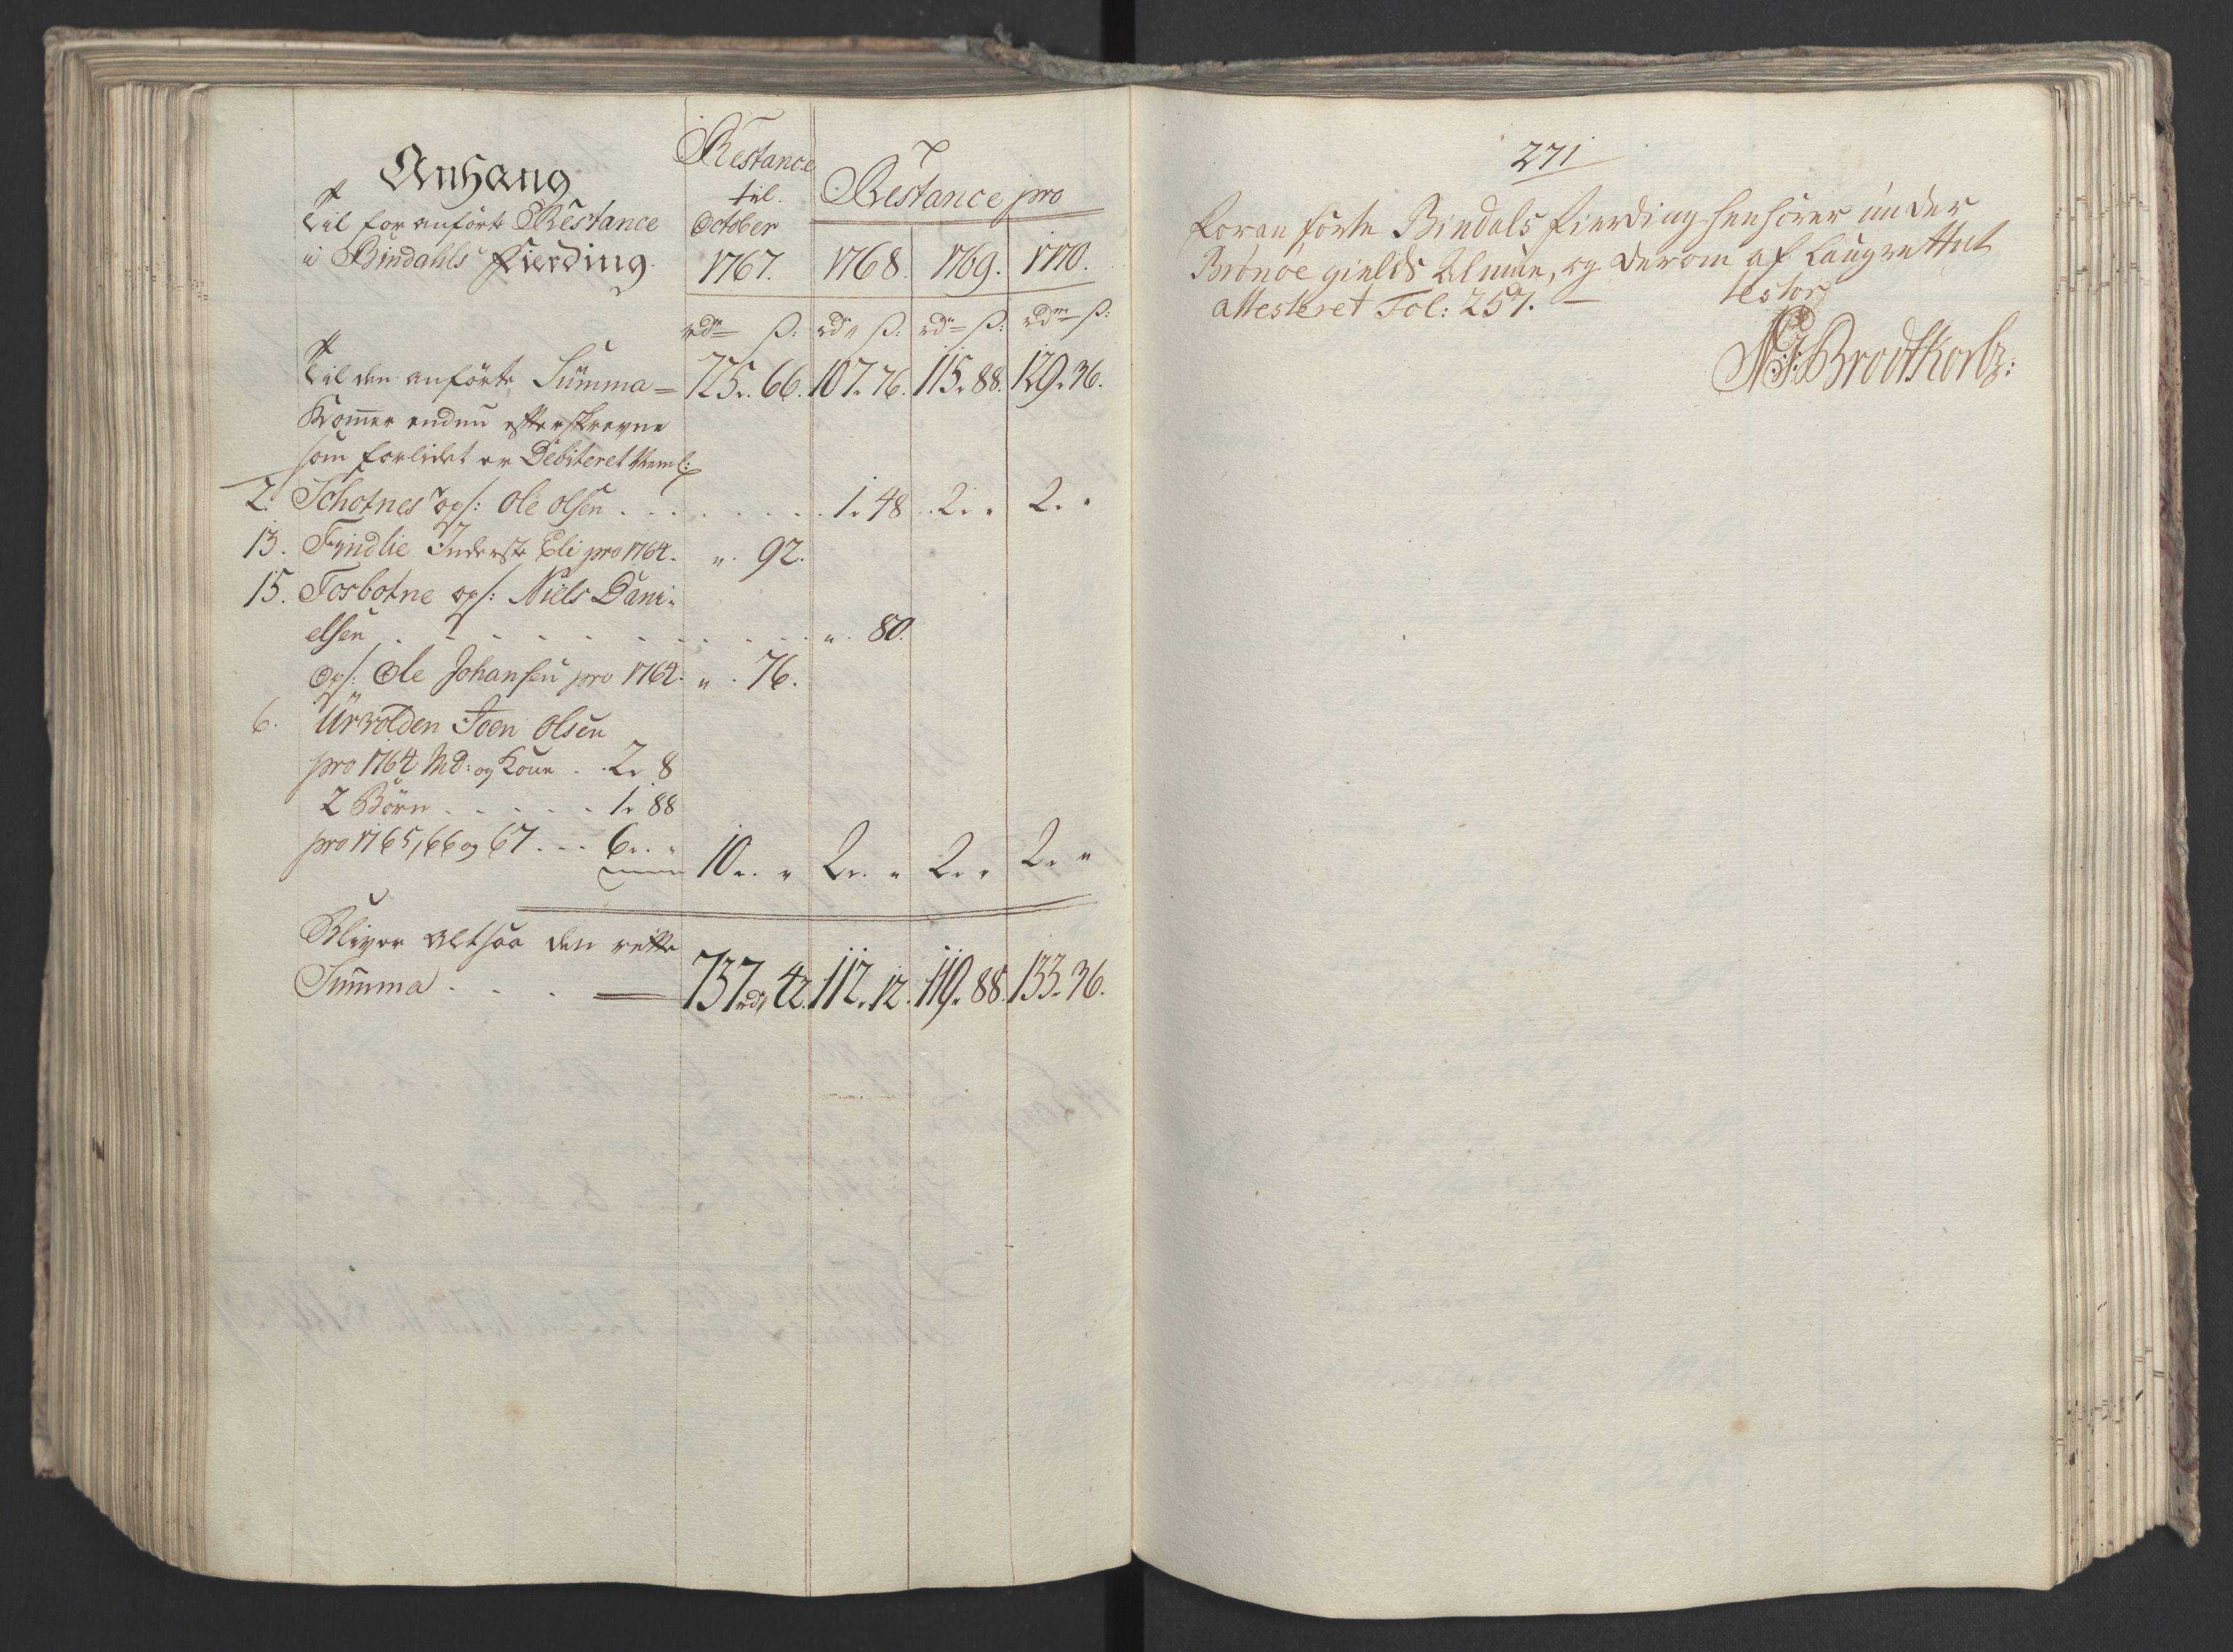 Anhang
Til for anførte Restance
i Bindahls Fierding.
Restance
til
October
1767.
Restance pro
1768. 1769. 1770.
rdr ß: rdr ß: rdr ß: rdr ß:
Til den anførte Summa = 725. 66. 107. 76. 115. 88. 129. 36.
Kom̅er endnu efterskrevne
som forlidet er Debiteret Neml:
2. Schotnes ops: Ole Olsen . . . 1. 48 . 2. " 2. "
13. Fyndlie Inderste Eli pro 1764. " . 92.
15. Fosbotne ops: Niels Dani-
elsen . . . " . 80.
Ops: Ole Johansen pro 1764. " . 76.
6. Urvolden Joen Olsen
pro 1764 Md: og Kone . . 2. 8
2 Børn . . . 1. 88
pro 1765, 66 og 67 . . . 6. " 10. " 2. " 2. " 2. "
Bliver altsaa den rette
Summa . . . 737 rdr 42. 112. 12. 119. 88. 133. 36.
271
Foranførte Bindals Fierding henhører under
Brønøe gields Almue, og derom af Laugrettet
attesteret Fol: 257. — testor
Brodtkorb: